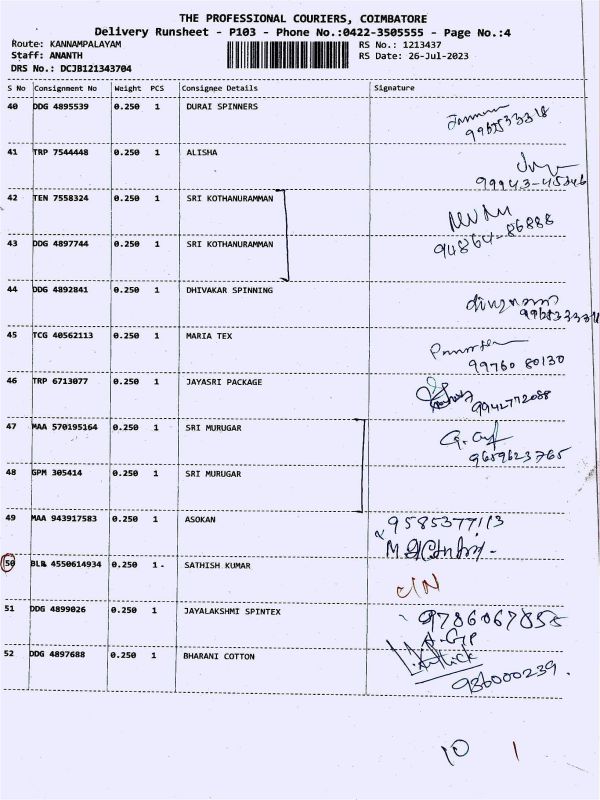 THE PROFESSIONAL COURIERS, COIMBATORE
Delivery Runsheet - P103 - Phone No.:0422-3505555 - Page No.:4
Route: KANNAMPALAYAM RS No.: 1213437
Staff: ANANTH RS Date: 26-Jul-2023
DRS No.: DCJB121343704
S No Consignment No Weight PCS Consignee Details Signature
40 DDG 4895539 0.250 1 DURAI SPINNERS
41 TRP 7544448 0.250 1 ALISHA
99943-45846
42 TEN 7558324 0.250 1 SRI KOTHANURAMMAN
43 DDG 4897744 0.250 1 SRI KOTHANURAMMAN
94864-86888
44 DDG 4892841 0.250 1 DHIVAKAR SPINNING
45 TCG 40562113 0.250 1 MARIA TEX
99760 80130
46 TRP 6713077 0.250 1 JAYASRI PACKAGE
9942772088
47 MAA 570195164 0.250 1 SRI MURUGAR
9659623765
48 GPM 305414 0.250 1 SRI MURUGAR
49 MAA 943917583 0.250 1 ASOKAN 9585377113
50 BLR 4550614934 0.250 1 - SATHISH KUMAR
C/N
51 DDG 4899026 0.250 1 JAYALAKSHMI SPINTEX 9786067855
52 DDG 4897688 0.250 1 BHARANI COTTON
936000239.
10 1